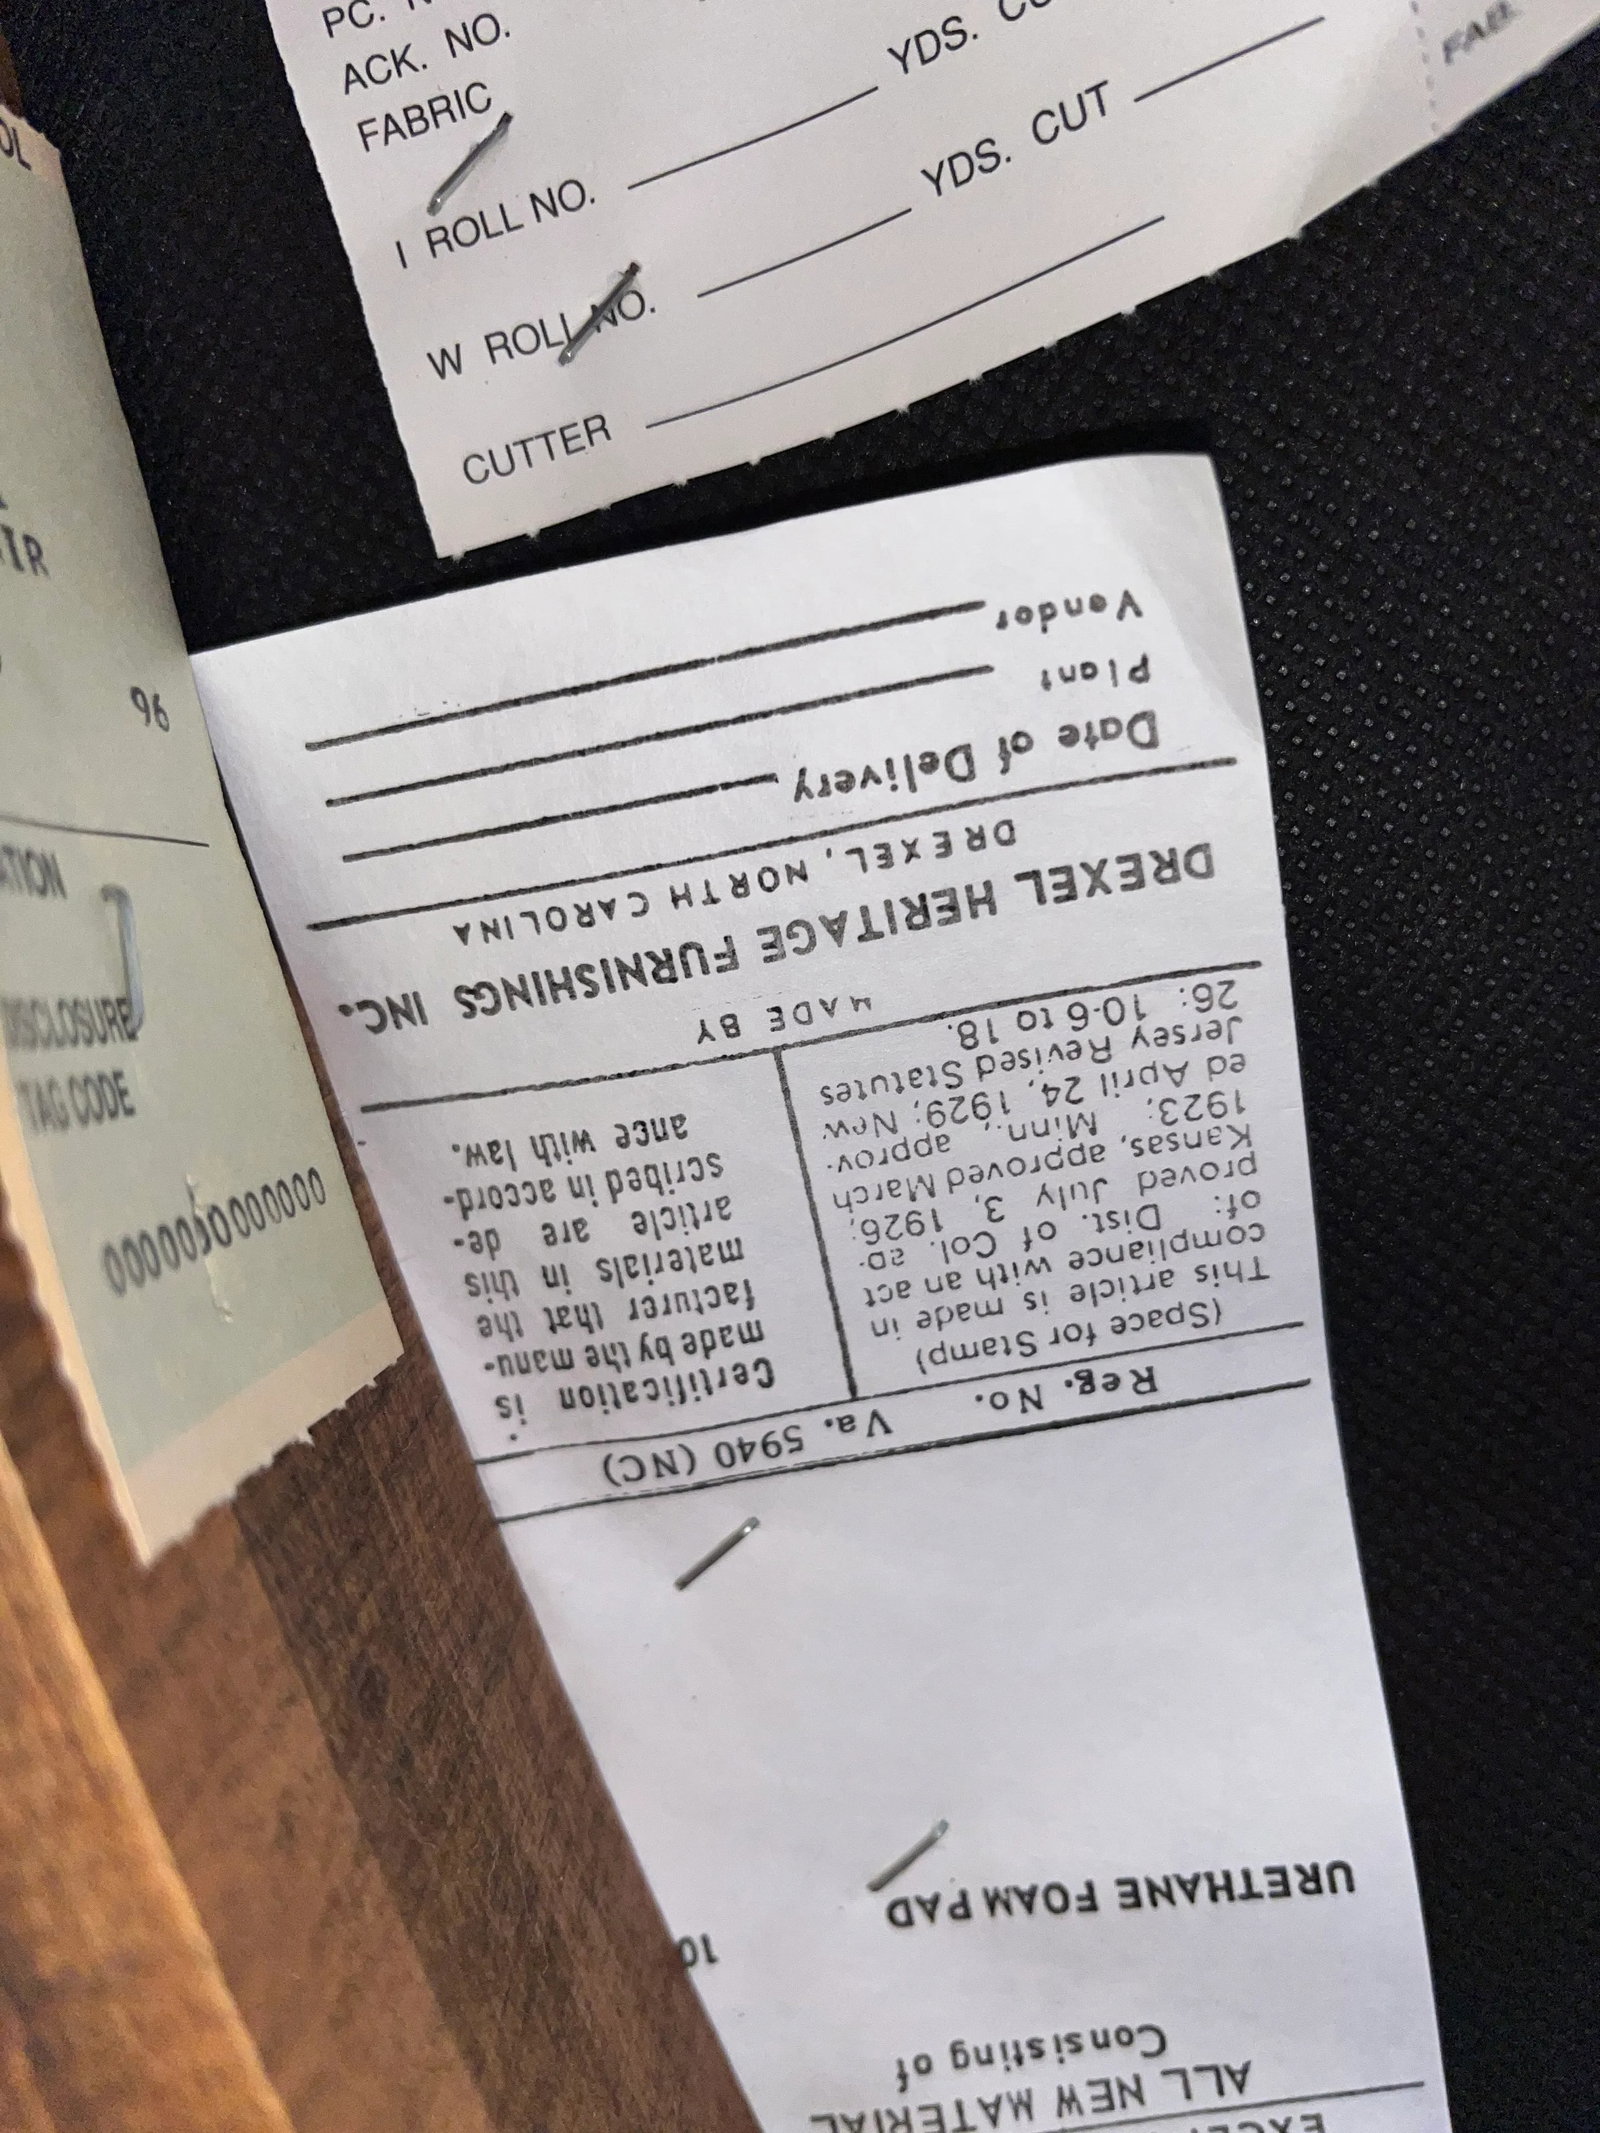 ACK. NO.
FABRIC
I ROLL NO. YDS.
W ROLL NO. YDS. CUT
CUTTER
96
DISCLOSURE
TAG CODE
ALL NEW MATERIAL
Consisting of
URETHANE FOAM PAD
Reg. No. Va. 5940 (NC)
(Space for Stamp)
This article is made in
compliance with an act
of: Dist. of Col. ap-
proved July 3, 1926;
Kansas, approved March
1923; Minn., approv-
ed April 24, 1929; New
Jersey Revised Statutes
26: 10-6 to 18.
Certification is
made by the manu-
facturer that the
materials in this
article are de-
scribed in accord-
ance with law.
MADE BY
DREXEL HERITAGE FURNISHINGS INC.
DREXEL, NORTH CAROLINA
Date of Delivery
Plant
Vendor